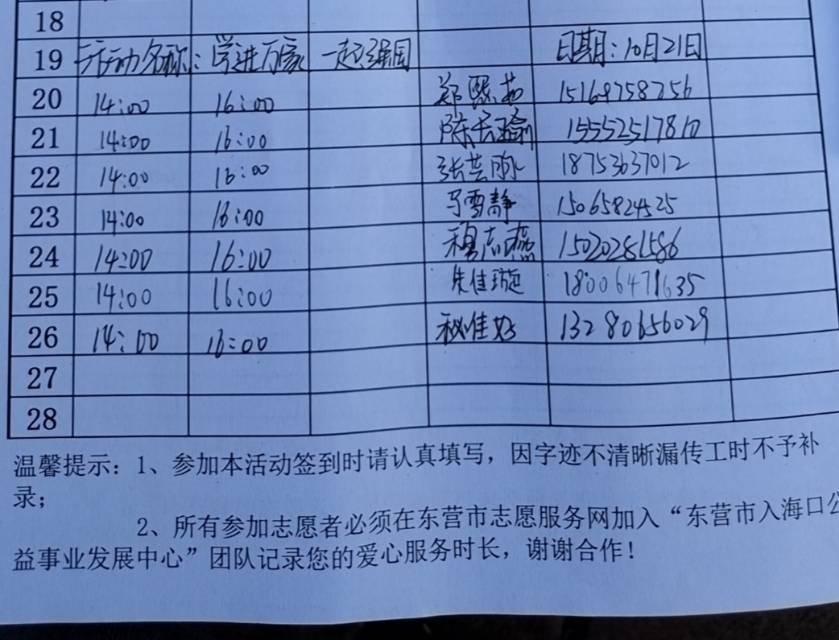 18
19 活动名称：学进万家 一起强国 日期：10月21日
20 14:00 16:00 郑熙茹 15169758256
21 14:00 16:00 陈 瑜 15552517810
22 14:00 16:00 张芸 18753637012
23 14:00 16:00 马雪静 15065824525
24 14:00 16:00 穆志燕 15020281586
25 14:00 16:00 朱佳璇 18006471635
26 14:00 16:00 佳 13280656029
27
28
温馨提示：1、参加本活动签到时请认真填写，因字迹不清晰漏传工时不予补
录；
2、所有参加志愿者必须在东营市志愿服务网加入“东营市入海口公
益事业发展中心”团队记录您的爱心服务时长，谢谢合作！